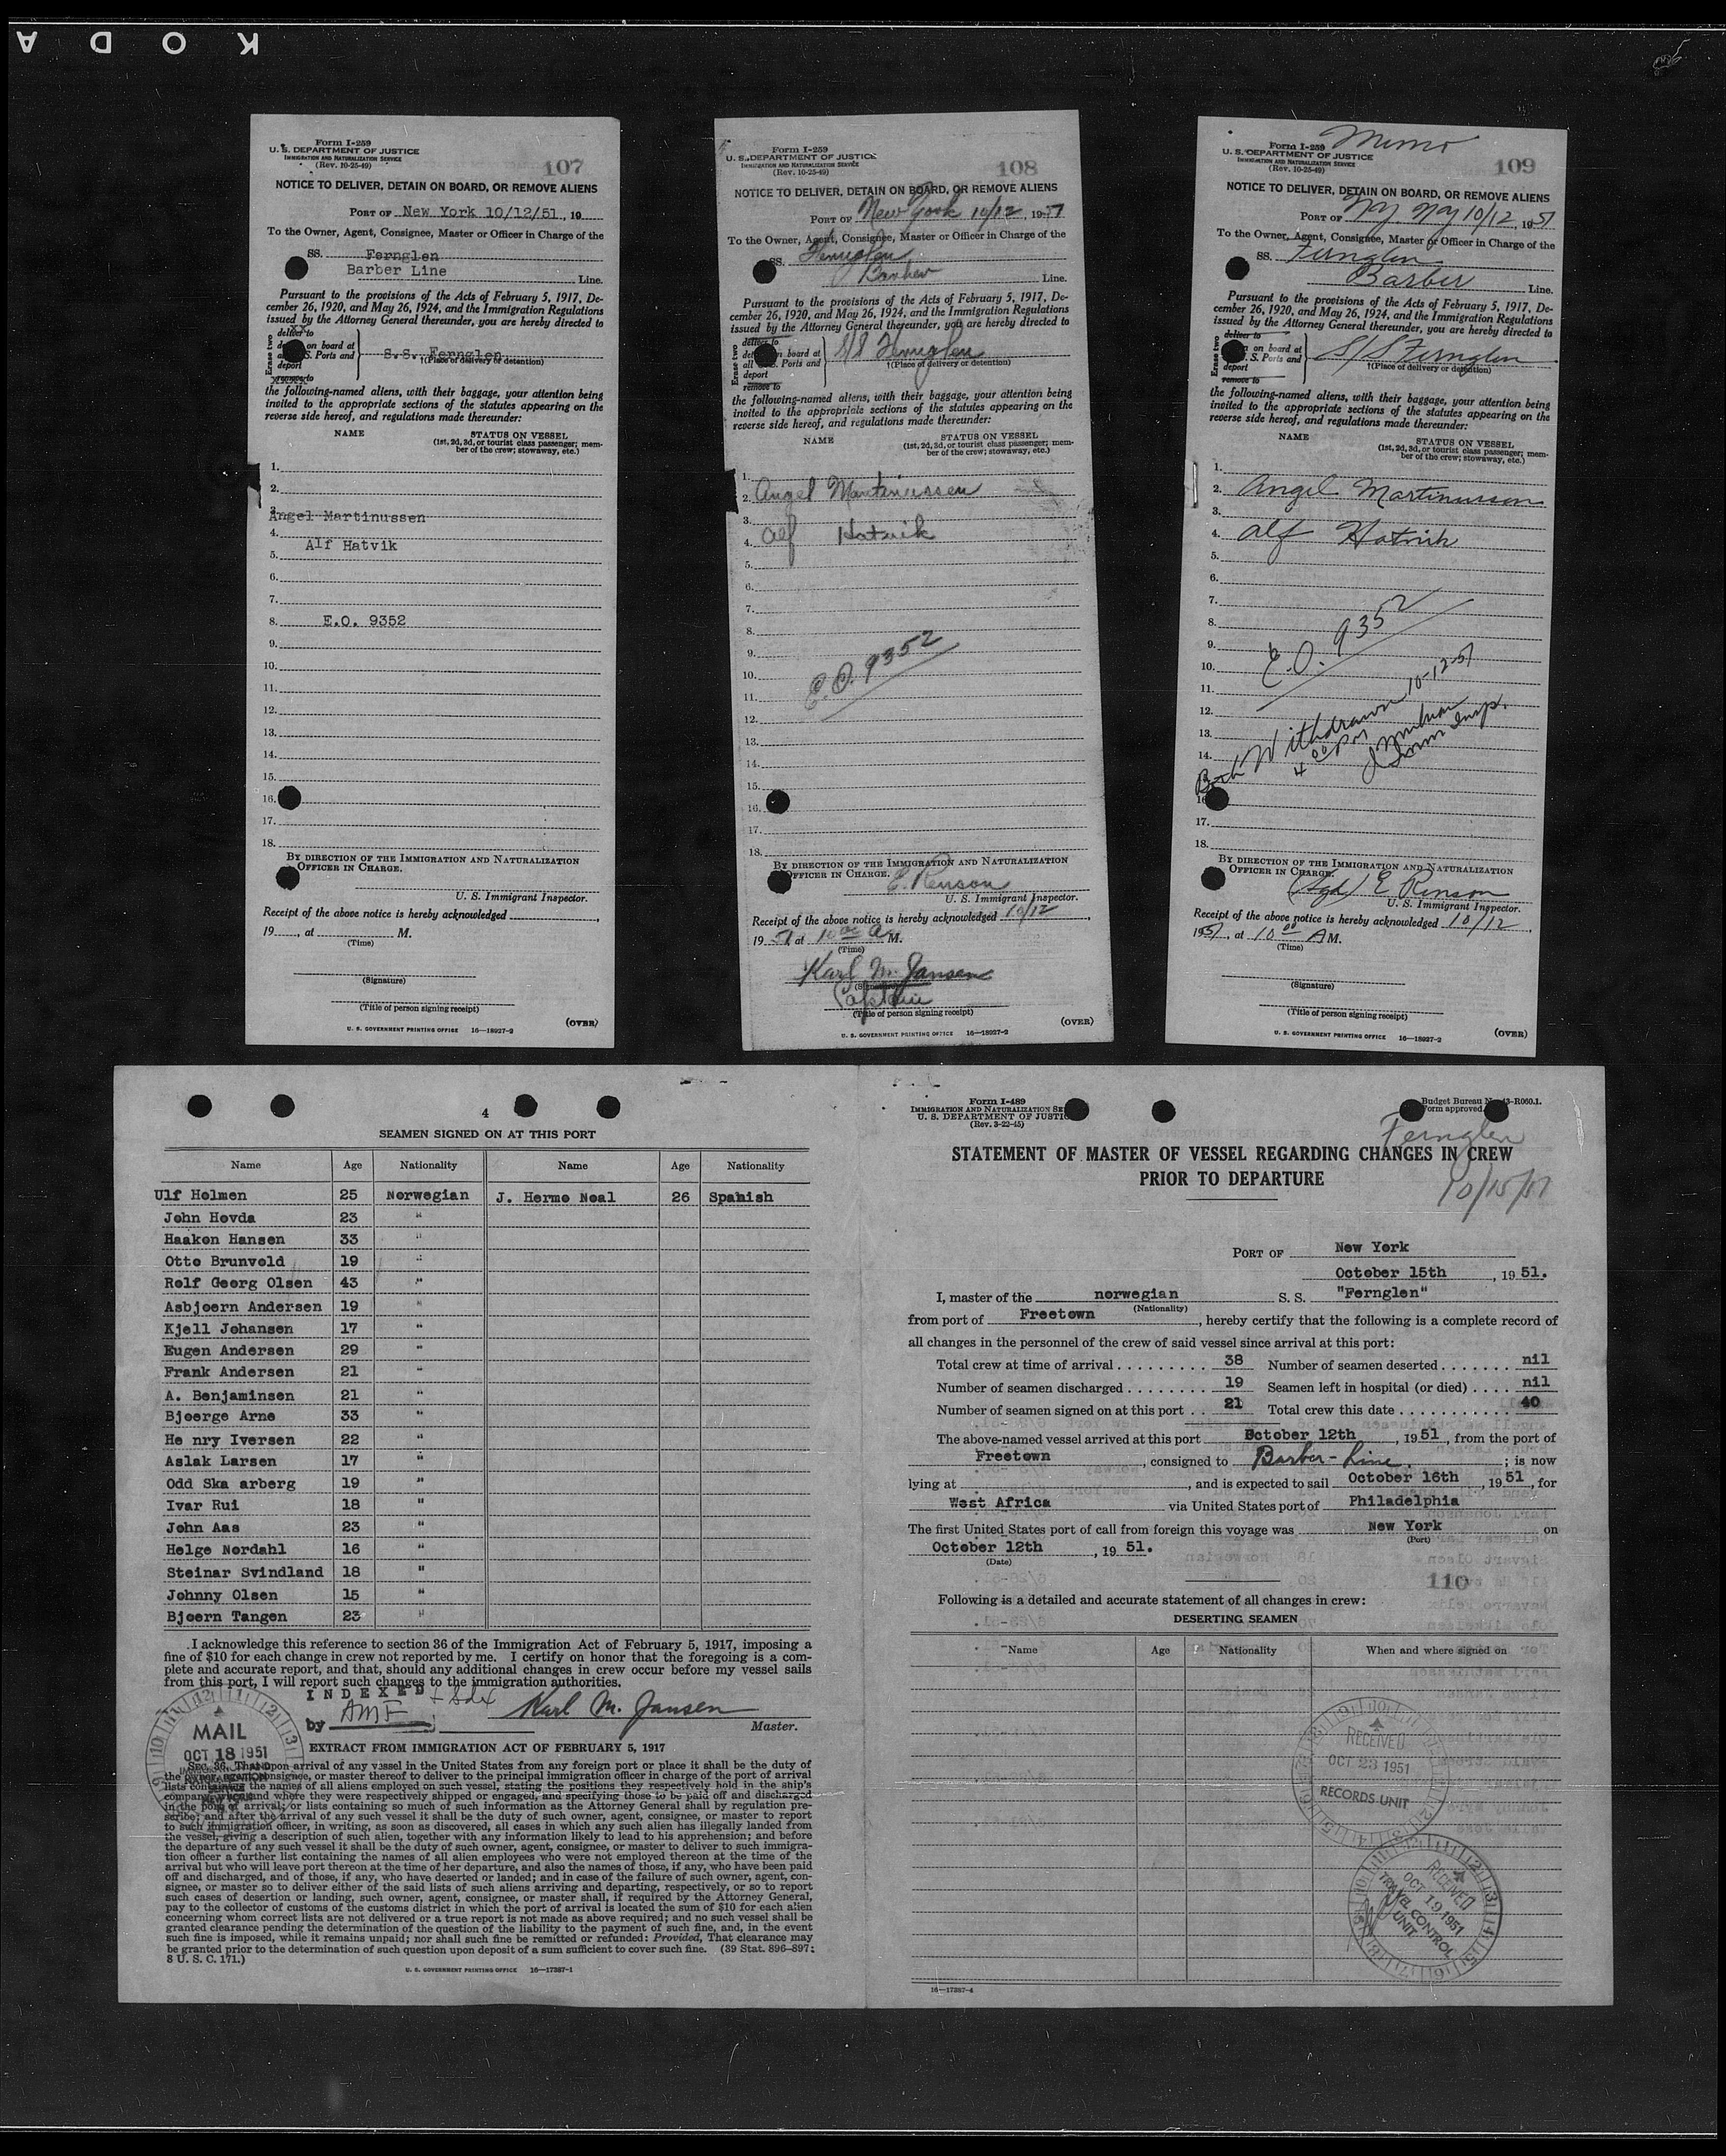 KODA
Form I-259
U. S. DEPARTMENT OF JUSTICE
IMMIGRATION AND NATURALIZATION SERVICE
(Rev. 10-25-49)
107
NOTICE TO DELIVER, DETAIN ON BOARD, OR REMOVE ALIENS
PORT OF New York 10/12/51, 19
To the Owner, Agent, Consignee, Master or Officer in Charge of the
SS. Fernglen
Barber Line Line.
Pursuant to the provisions of the Acts of February 5, 1917, De-
cember 26, 1920, and May 26, 1924, and the Immigration Regulations
issued by the Attorney General thereunder, you are hereby directed to
Erase two
deliver to
on board at
S. Ports and
deport
remove to
S.S. Fernglen
†(Place of delivery or detention)
the following-named aliens, with their baggage, your attention being
invited to the appropriate sections of the statutes appearing on the
reverse side hereof, and regulations made thereunder:
NAME STATUS ON VESSEL
(1st, 2d, 3d, or tourist class passenger; mem-
ber of the crew; stowaway, etc.)
1.
2.
3.
Angel Martinussen
4.
Alf Hatvik
5.
6.
7.
8. E.O. 9352
9.
10.
11.
12.
13.
14.
15.
16.
17.
18.
BY DIRECTION OF THE IMMIGRATION AND NATURALIZATION
OFFICER IN CHARGE.
U. S. Immigrant Inspector.
Receipt of the above notice is hereby acknowledged
19, at M.
(Time)
(Signature)
(Title of person signing receipt)
U. S. GOVERNMENT PRINTING OFFICE 16—18927-2 (OVER)
Form I-259
U. S. DEPARTMENT OF JUSTICE
IMMIGRATION AND NATURALIZATION SERVICE
(Rev. 10-25-49)
108
NOTICE TO DELIVER, DETAIN ON BOARD, OR REMOVE ALIENS
PORT OF New York 10/12, 1951
To the Owner, Agent, Consignee, Master or Officer in Charge of the
SS. Fernglen
Barber Line.
Pursuant to the provisions of the Acts of February 5, 1917, De-
cember 26, 1920, and May 26, 1924, and the Immigration Regulations
issued by the Attorney General thereunder, you are hereby directed to
Erase two
deliver to
on board at
all S. Ports and
deport
remove to
S/S Fernglen
†(Place of delivery or detention)
the following-named aliens, with their baggage, your attention being
invited to the appropriate sections of the statutes appearing on the
reverse side hereof, and regulations made thereunder:
NAME STATUS ON VESSEL
(1st, 2d, 3d, or tourist class passenger; mem-
ber of the crew; stowaway, etc.)
1.
2. Angel Martinussen
3.
4. Alf Hatvik
5.
6.
7.
8.
9.
10. E.O. 9352
11.
12.
13.
14.
15.
16.
17.
18.
BY DIRECTION OF THE IMMIGRATION AND NATURALIZATION
OFFICER IN CHARGE.
E. Renson
U. S. Immigrant Inspector.
Receipt of the above notice is hereby acknowledged 10/12,
1951 at 10 00 A M.
(Time)
Karl M. Jansen
(Signature)
Captain
(Title of person signing receipt)
U. S. GOVERNMENT PRINTING OFFICE 16—18927-2 (OVER)
Memo
Form I-259
U. S. DEPARTMENT OF JUSTICE
IMMIGRATION AND NATURALIZATION SERVICE
(Rev. 10-25-49)
109
NOTICE TO DELIVER, DETAIN ON BOARD, OR REMOVE ALIENS
PORT OF NY NY 10/12, 1951
To the Owner, Agent, Consignee, Master or Officer in Charge of the
SS. Fernglen
Barber Line.
Pursuant to the provisions of the Acts of February 5, 1917, De-
cember 26, 1920, and May 26, 1924, and the Immigration Regulations
issued by the Attorney General thereunder, you are hereby directed to
Erase two
deliver to
on board at
S. Ports and
deport
remove to
S/S Fernglen
†(Place of delivery or detention)
the following-named aliens, with their baggage, your attention being
invited to the appropriate sections of the statutes appearing on the
reverse side hereof, and regulations made thereunder:
NAME STATUS ON VESSEL
(1st, 2d, 3d, or tourist class passenger; mem-
ber of the crew; stowaway, etc.)
1.
2. Angel Martinussen
3.
4. Alf Hatvik
5.
6.
7.
8.
9. E.O. 9352
10.
11.
12.
13.
14.
Both Withdrawn 10-12-51
4 00 PM
Imm Insp.
16
17.
18.
BY DIRECTION OF THE IMMIGRATION AND NATURALIZATION
OFFICER IN CHARGE.
(Sgd) E Renson
U. S. Immigrant Inspector.
Receipt of the above notice is hereby acknowledged 10/12,
1951, at 10 00 A M.
(Time)
(Signature)
(Title of person signing receipt)
U. S. GOVERNMENT PRINTING OFFICE 16—18927-2 (OVER)
4
SEAMEN SIGNED ON AT THIS PORT
Name Age Nationality Name Age Nationality
Ulf Holmen 25 Norwegian J. Hermo Noal 26 Spanish
John Hovda 23 "
Haakon Hansen 33 "
Otto Brunvold 19 "
Rolf Georg Olsen 43 "
Asbjoern Andersen 19 "
Kjell Johansen 17 "
Eugen Andersen 29 "
Frank Andersen 21 "
A. Benjaminsen 21 "
Bjoerge Arne 33 "
He nry Iversen 22 "
Aslak Larsen 17 "
Odd Ska arberg 19 "
Ivar Rui 18 "
John Aas 23 "
Helge Nordahl 16 "
Steinar Svindland 18 "
Johnny Olsen 15 "
Bjoern Tangen 23 "
I acknowledge this reference to section 36 of the Immigration Act of February 5, 1917, imposing a
fine of $10 for each change in crew not reported by me. I certify on honor that the foregoing is a com-
plete and accurate report, and that, should any additional changes in crew occur before my vessel sails
from this port, I will report such changes to the immigration authorities.
INDEXED
by AMF
Karl M. Jansen
Master.
MAIL
OCT 18 1951
EXTRACT FROM IMMIGRATION ACT OF FEBRUARY 5, 1917
SEC. 36. That upon arrival of any vessel in the United States from any foreign port or place it shall be the duty of
the owner, agent, consignee, or master thereof to deliver to the principal immigration officer in charge of the port of arrival
lists containing the names of all aliens employed on such vessel, stating the positions they respectively hold in the ship's
company, when and where they were respectively shipped or engaged, and specifying those to be paid off and discharged
in the port of arrival; or lists containing so much of such information as the Attorney General shall by regulation pre-
scribe; and after the arrival of any such vessel it shall be the duty of such owner, agent, consignee, or master to report
to such immigration officer, in writing, as soon as discovered, all cases in which any such alien has illegally landed from
the vessel, giving a description of such alien, together with any information likely to lead to his apprehension; and before
the departure of any such vessel it shall be the duty of such owner, agent, consignee, or master to deliver to such immigra-
tion officer a further list containing the names of all alien employees who were not employed thereon at the time of the
arrival but who will leave port thereon at the time of her departure, and also the names of those, if any, who have been paid
off and discharged, and of those, if any, who have deserted or landed; and in case of the failure of such owner, agent, con-
signee, or master so to deliver either of the said lists of such aliens arriving and departing, respectively, or so to report
such cases of desertion or landing, such owner, agent, consignee, or master shall, if required by the Attorney General,
pay to the collector of customs of the customs district in which the port of arrival is located the sum of $10 for each alien
concerning whom correct lists are not delivered or a true report is not made as above required; and no such vessel shall be
granted clearance pending the determination of the question of the liability to the payment of such fine, and, in the event
such fine is imposed, while it remains unpaid; nor shall such fine be remitted or refunded: Provided, That clearance may
be granted prior to the determination of such question upon deposit of a sum sufficient to cover such fine. (39 Stat. 896-897;
8 U. S. C. 171.)
U. S. GOVERNMENT PRINTING OFFICE 16—17387-1
Form I-489
IMMIGRATION AND NATURALIZATION SE
U. S. DEPARTMENT OF JUSTIC
(Rev. 3-22-45)
Budget Bureau N 43-R060.1.
Form approved.
Fernglen
10/15/51
STATEMENT OF MASTER OF VESSEL REGARDING CHANGES IN CREW
PRIOR TO DEPARTURE
PORT OF New York
October 15th, 19 51.
I, master of the norwegian S. S. "Fernglen"
(Nationality)
from port of Freetown, hereby certify that the following is a complete record of
all changes in the personnel of the crew of said vessel since arrival at this port:
Total crew at time of arrival 38 Number of seamen deserted nil
Number of seamen discharged 19 Seamen left in hospital (or died) nil
Number of seamen signed on at this port 21 Total crew this date 40
The above-named vessel arrived at this port October 12th, 19 51, from the port of
Freetown, consigned to Barber-Line.; is now
lying at, and is expected to sail October 16th, 19 51, for
West Africa via United States port of Philadelphia
The first United States port of call from foreign this voyage was New York on
(Port)
October 12th, 19 51.
(Date)
110
Following is a detailed and accurate statement of all changes in crew:
DESERTING SEAMEN
Name Age Nationality When and where signed on
RECEIVED
OCT 23 1951
RECORDS UNIT
RECEIVED
OCT 19 1951
TRAVEL CONTROL
UNIT
16—17387-4